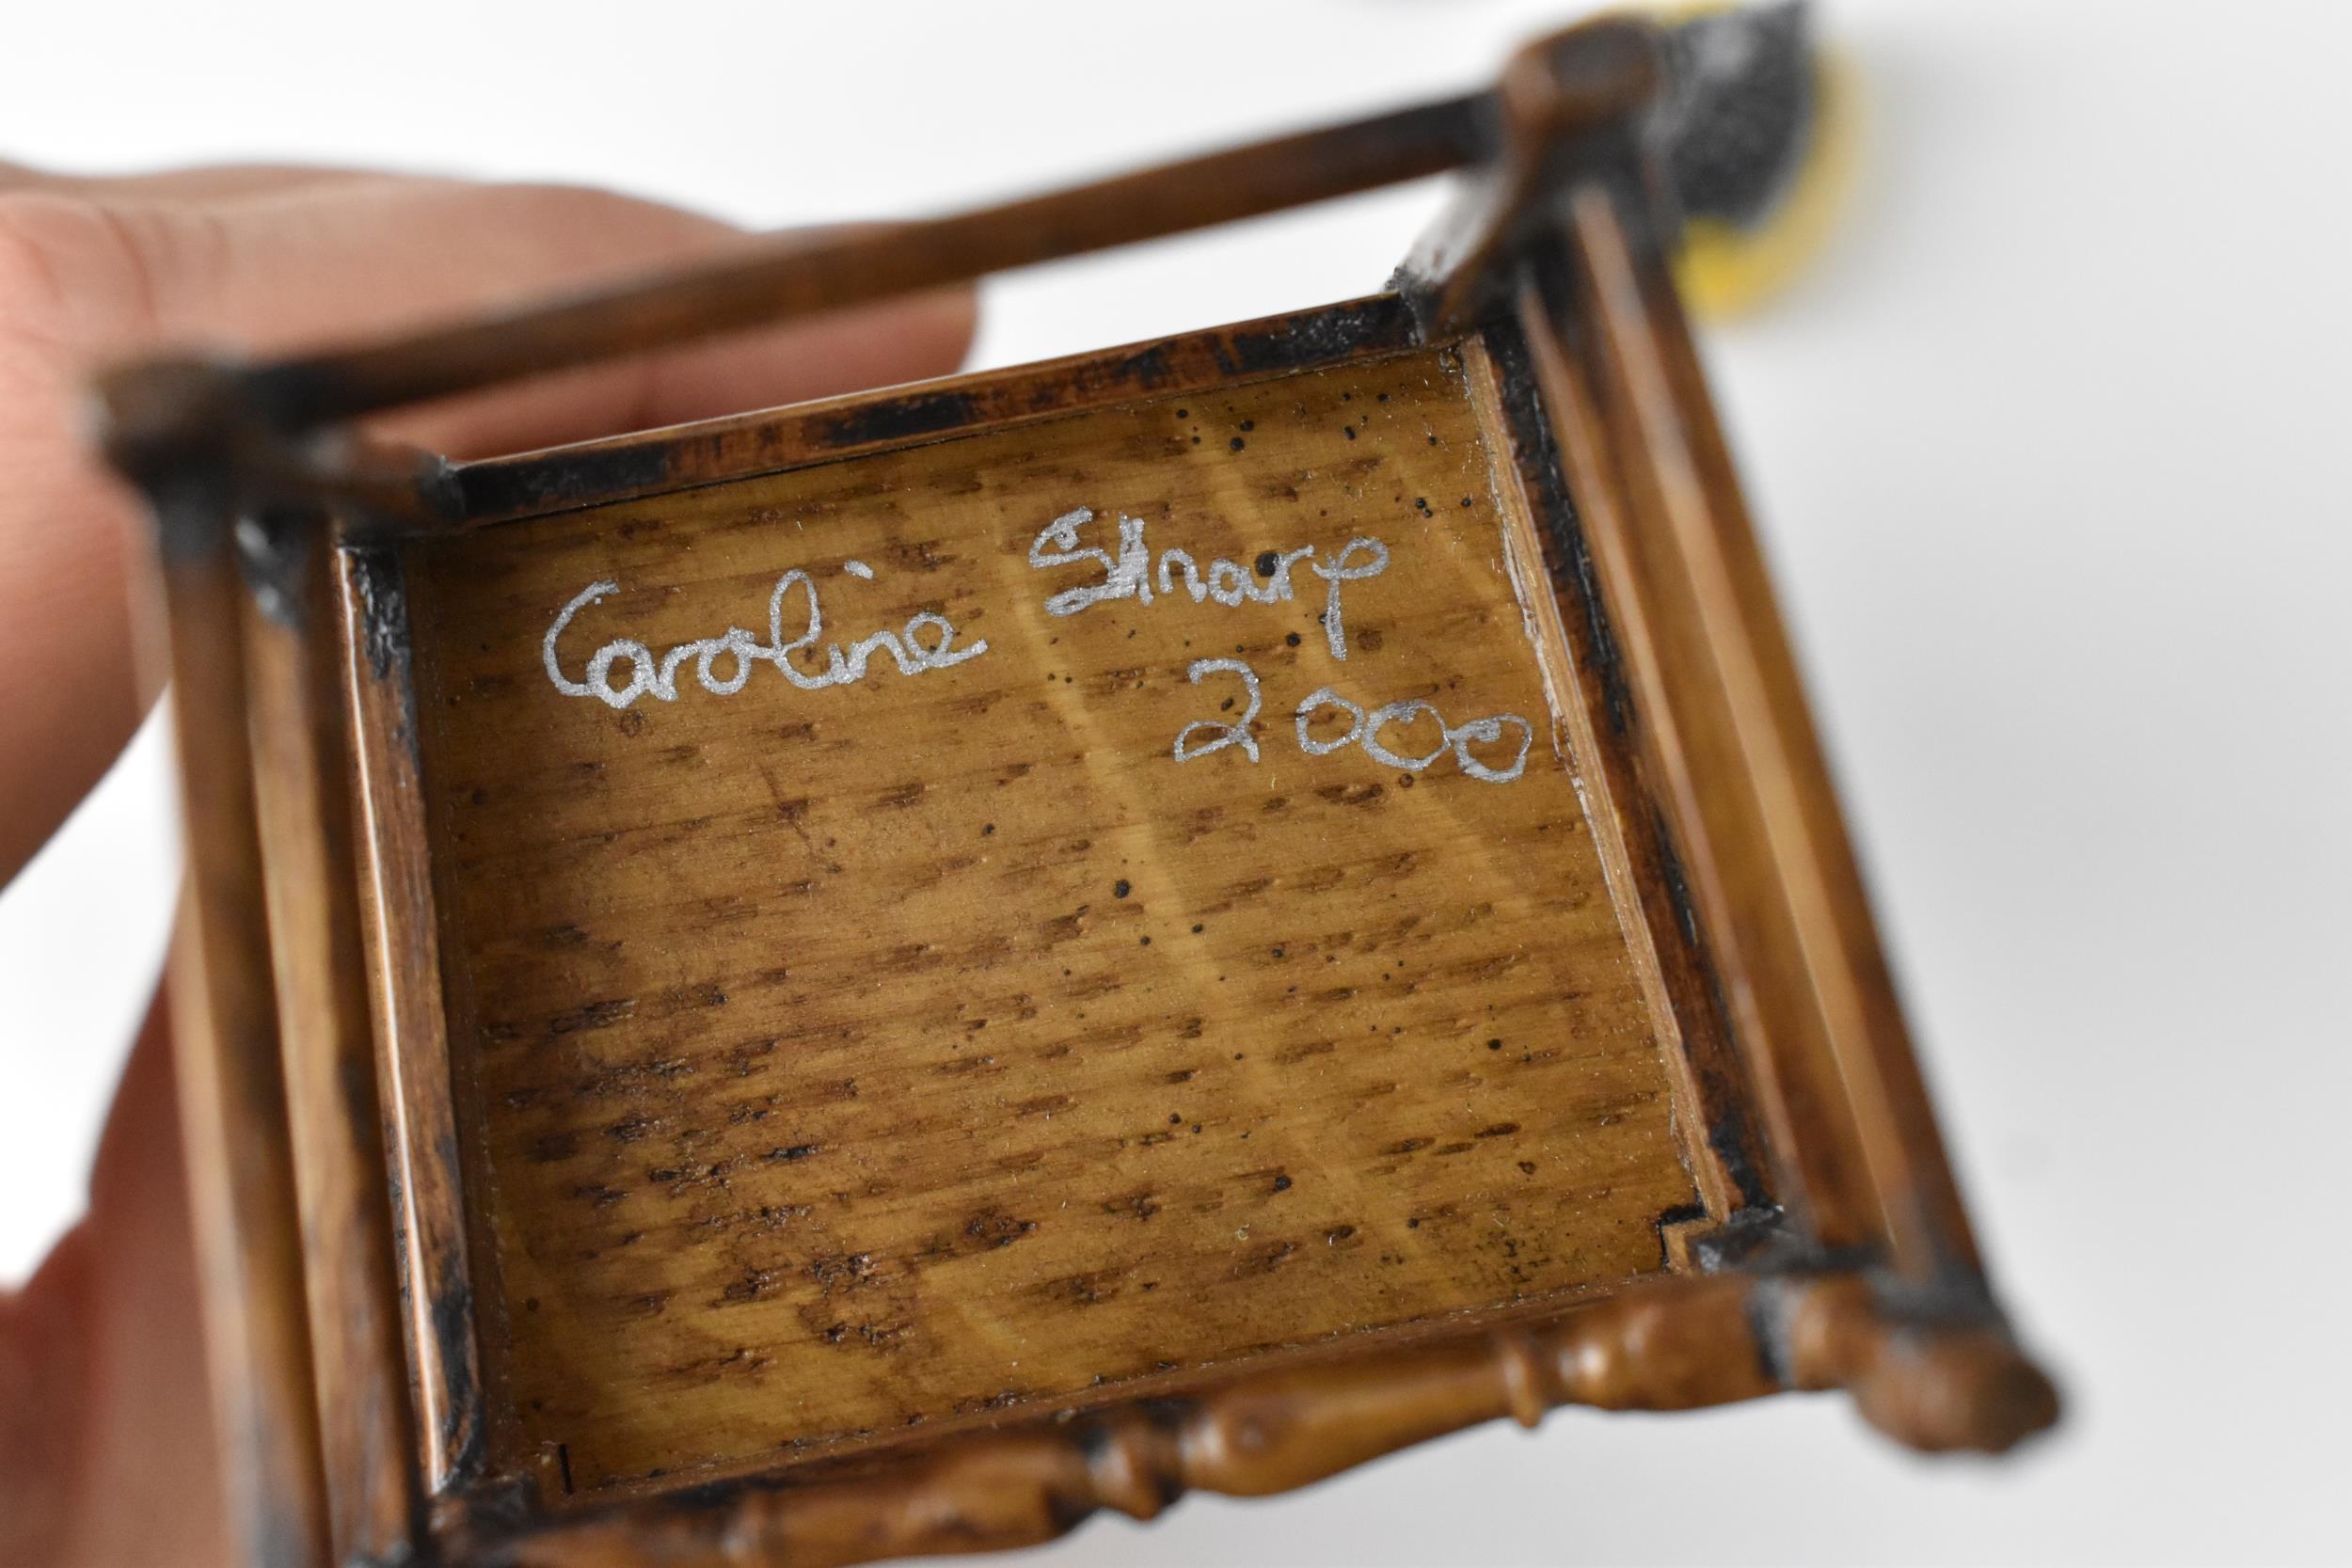 Caroline Sharp
2000